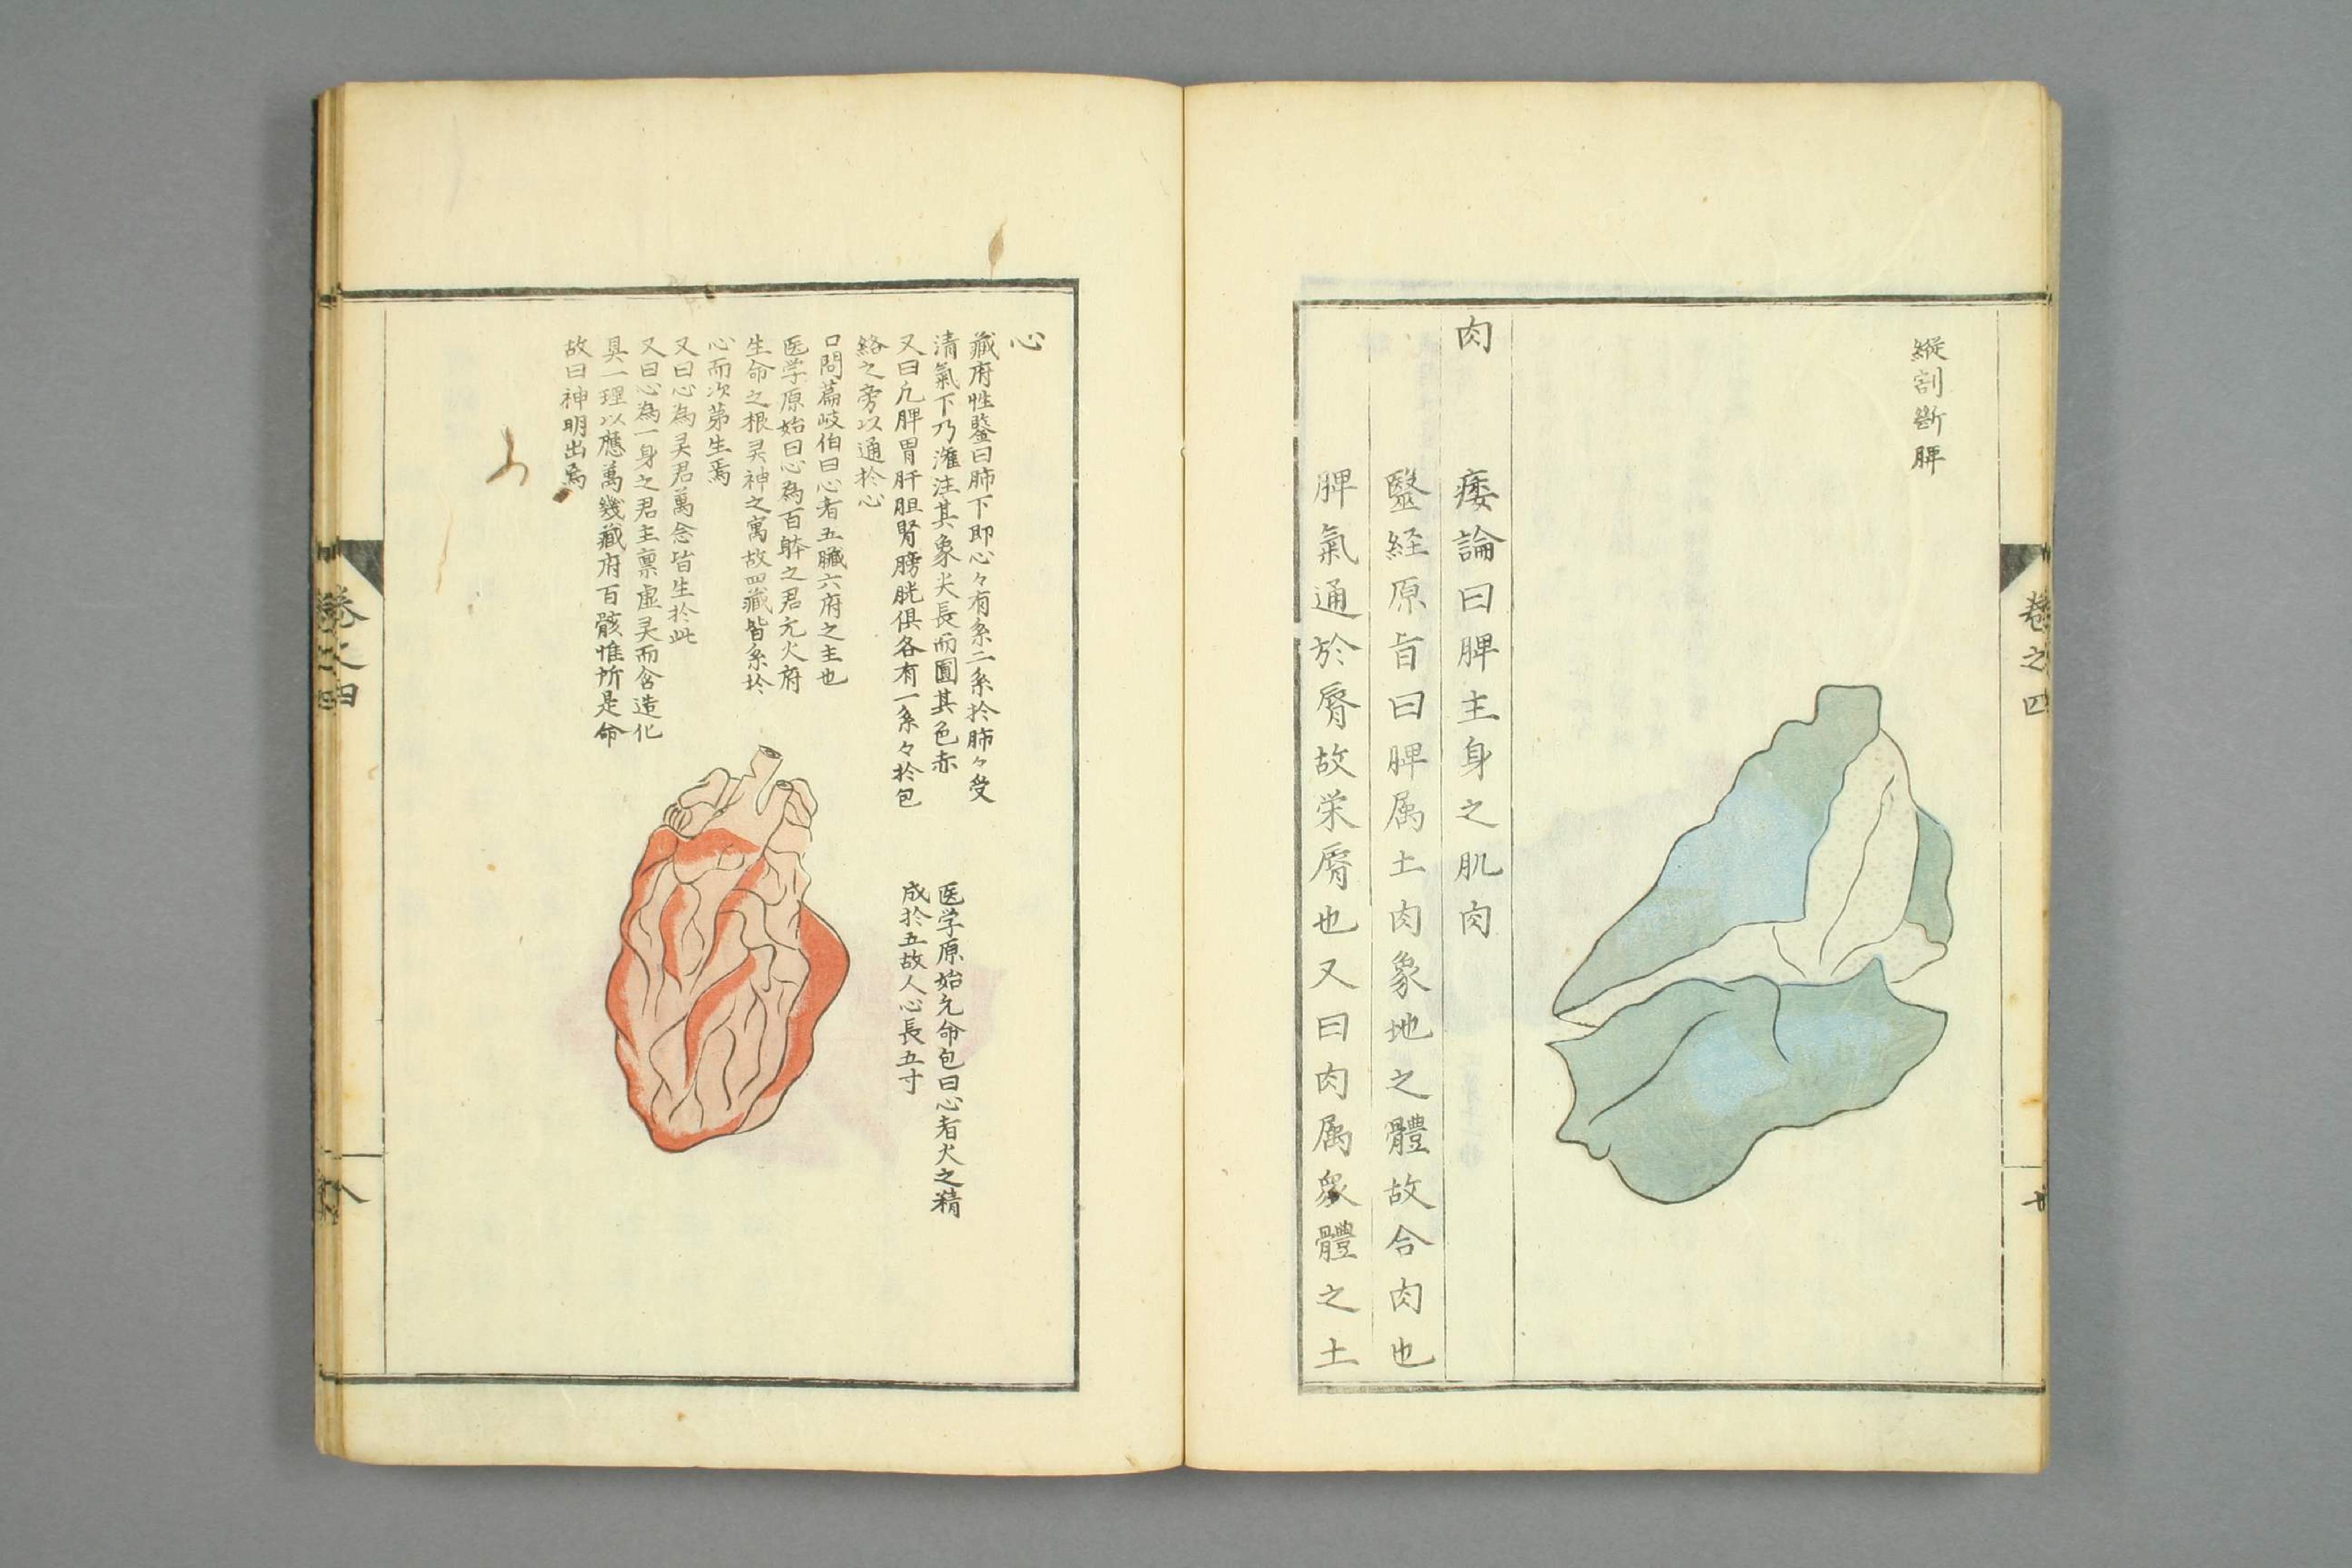 縱割斷脾
肉
痿論曰脾主身之肌肉
毉経原旨曰脾属土肉象地之體故合肉也
脾氣通於脣故栄脣也又曰肉属衆體之土
卷之四
心
藏府性鑒曰肺下即心々有系二系於肺々受
清氣下乃灌注其象尖長而圓其色赤
又曰凡脾胃肝胆腎膀胱俱各有一系々於包
絡之旁以通於心
口問篇岐伯曰心者五臓六府之主也
医学原始曰心為百躰之君元火府
生命之根灵神之寓故四藏皆系於
心而次第生焉
又曰心為灵君萬念皆生於此
又曰心為一身之君主禀虚灵而含造化
具一理以應萬幾藏府百骸惟所是命
故曰神明出焉
医学原始元命包曰心者火之精
成於五故人心長五寸
卷之四